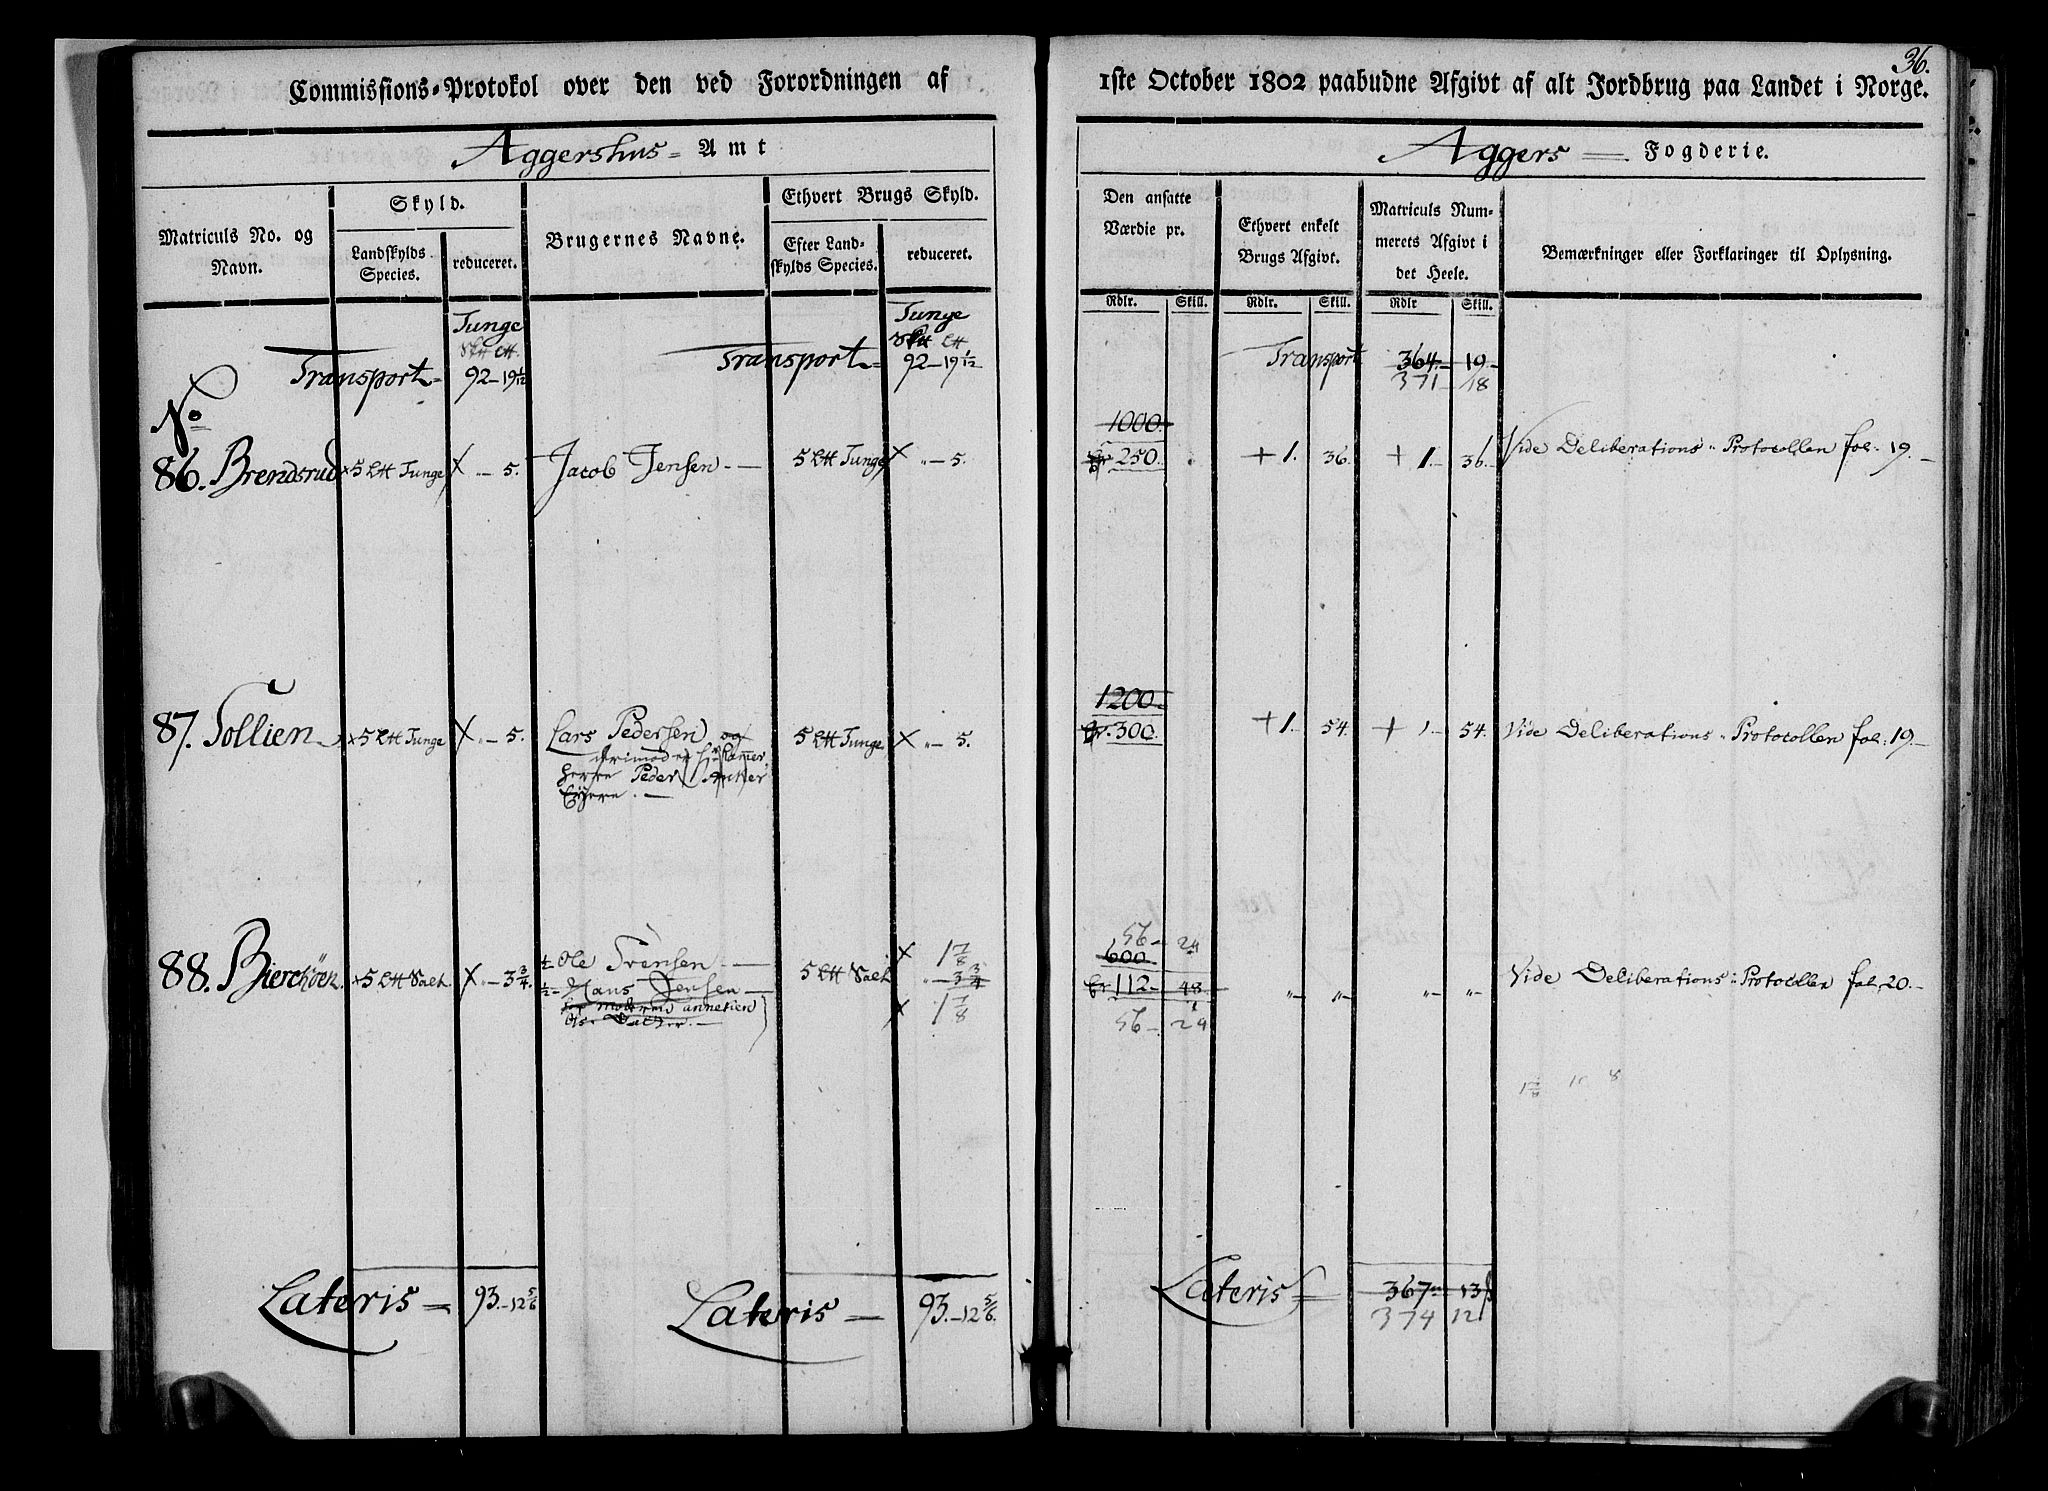 36.
Commissions-Protokol over den ved Forordningen af 1ste October 1802 paabudne Afgivt af alt Jordbrug paa Landet i Norge.
Aggershus = Amt
Aggers = Fogderie.
Matriculs No. og Navn.
Skyld.
Landskylds Species.
reduceret.
Brugernes Navne.
Ethvert Brugs Skyld.
Efter Landskylds Species.
reduceret.
Den ansatte Værdie pr.
Ethvert enkelt Brugs Afgivt.
Matriculs Nummerets Afgivt i det Heele.
Bemærkninger eller Forklaringer til Oplysning.
Rdlr. Skill. Rdlr. Skill. Rdlr Skill.
Tunge Tunge
Transport = 92 – 19 1/12 Transport = 92 – 19 1/12 Transport 364 – 19 –
371 18
No
1000.
86. Brendsrud × 5 Tunge × „ – 5. Jacob Jensen – 5 Tunge × „ – 5. 250. + 1. 36. + 1. 36. Vide Deliberations „ Protocollen fol. 19. –
1200.
87. Tollien × 5 Tunge × „ – 5. Lars Pedersen og 5 Tunge × „ – 5. 300. + 1. 54. + 1. 54. Vide Deliberations „ Protocollen fol: 19. –
herre Peder Anker
Eyere. –
56 – 24
600
88. × 5 × „ – 3 3/4 Ole – 5 × 1 7/8
1/2 – Hans Jensen – „ – 3 3/4 112 – 48 „ „ „ „ Vide Deliberations „ Protocollen fol. 20. –
× 1 7/8 56 – 24
1 7/8
Lateris = 93. – 12 5/6 Lateris = 93. – 12 5/6. Lateris = 367 – 13
374 12